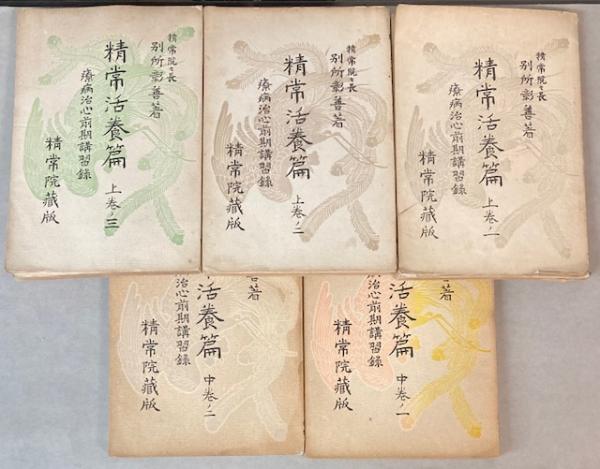 精常院々長
別所彰善著
精常活養篇 上巻ノ一
療病治心前期講習錄
精常院藏版
精常院々長
別所彰善著
精常活養篇 上巻ノ二
療病治心前期講習錄
精常院藏版
精常院々長
別所彰善著
精常活養篇 上巻ノ三
療病治心前期講習錄
精常院藏版
著
活養篇 中巻ノ一
治心前期講習錄
精常院藏版
著
活養篇 中巻ノ二
治心前期講習錄
精常院藏版